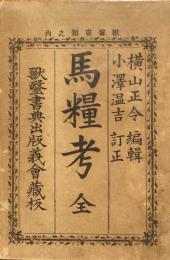 獸醫書類之內
橫山正令 編輯
小澤温吉 訂正
馬糧考 全
獸醫書典出版義會藏板